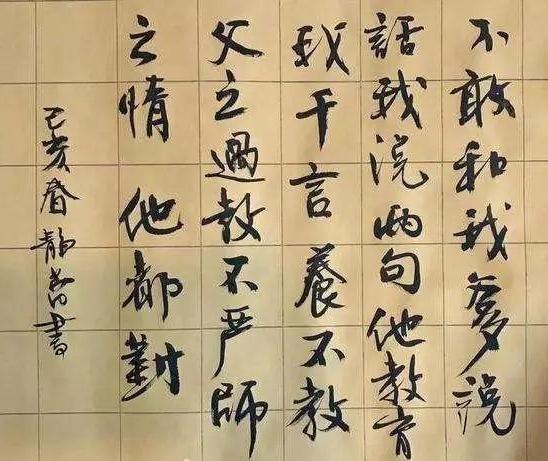 不敢和我爹説
話我説两句他教育
我千言養不教
父之過教不严師
之情 他都對
己亥春静香書